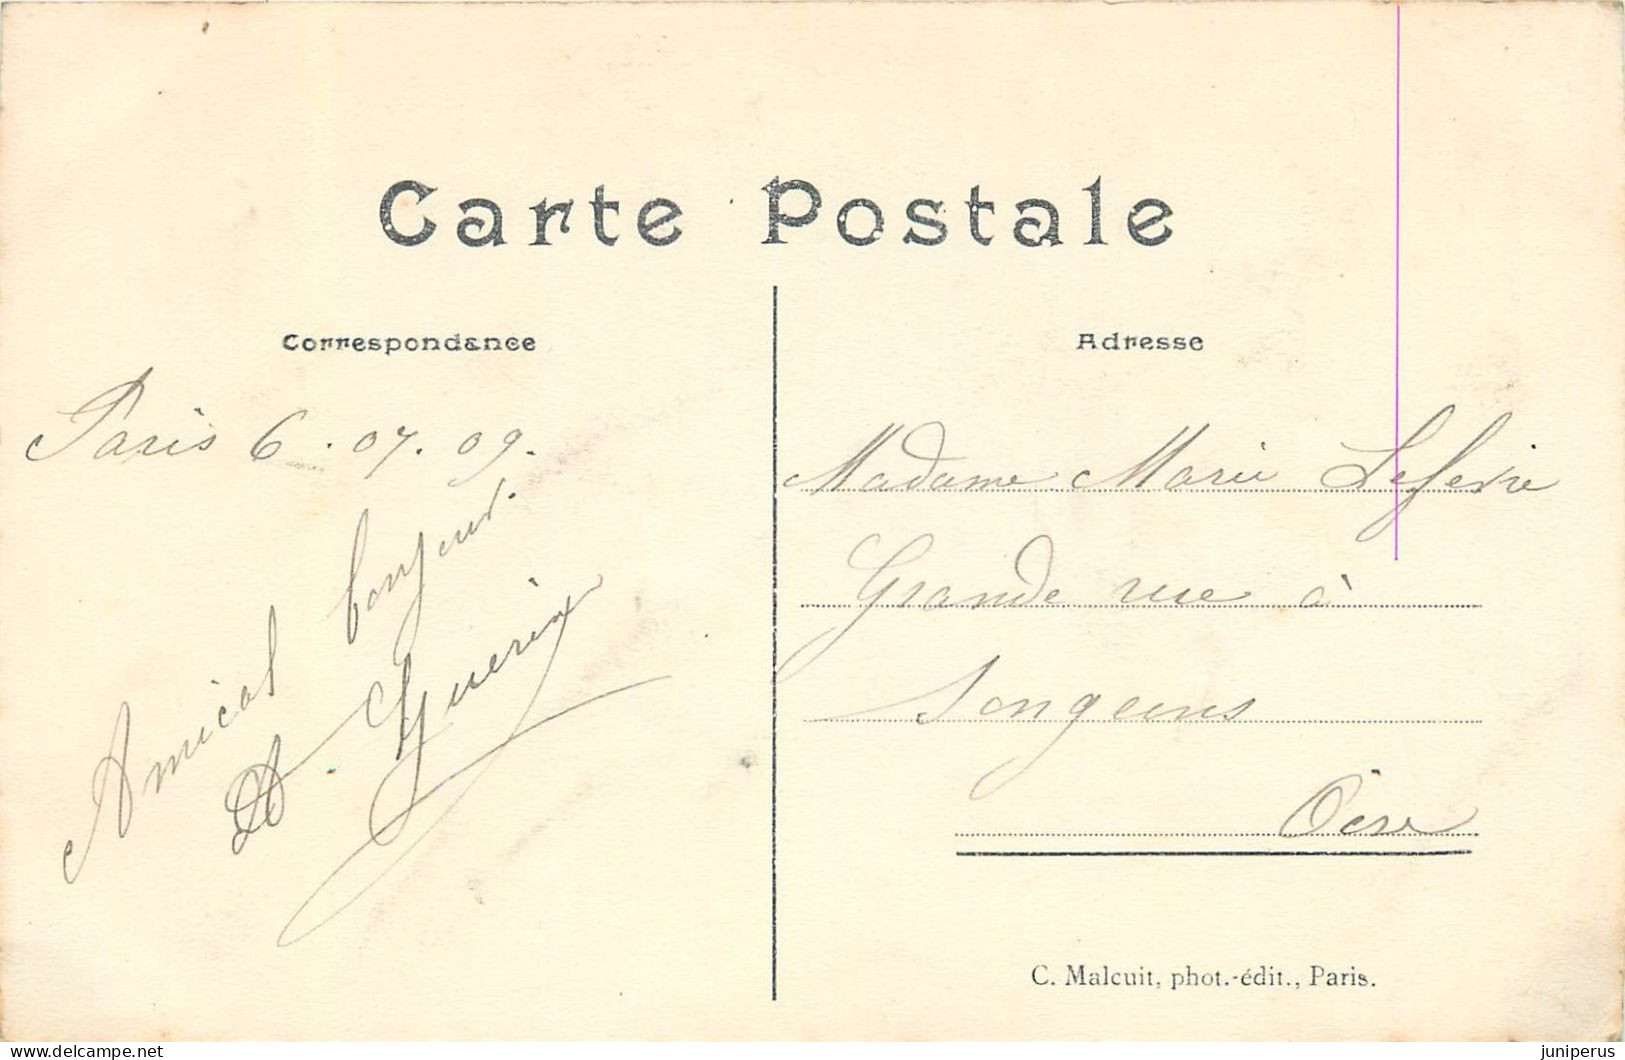 Carte Postale
Correspondance
Paris 6.07.09.
Amical bonjour.
Adresse
Madame Marie Lefevre
Grande rue à
Songeons
Oise
C. Malcuit, phot.-édit., Paris.
juniperus